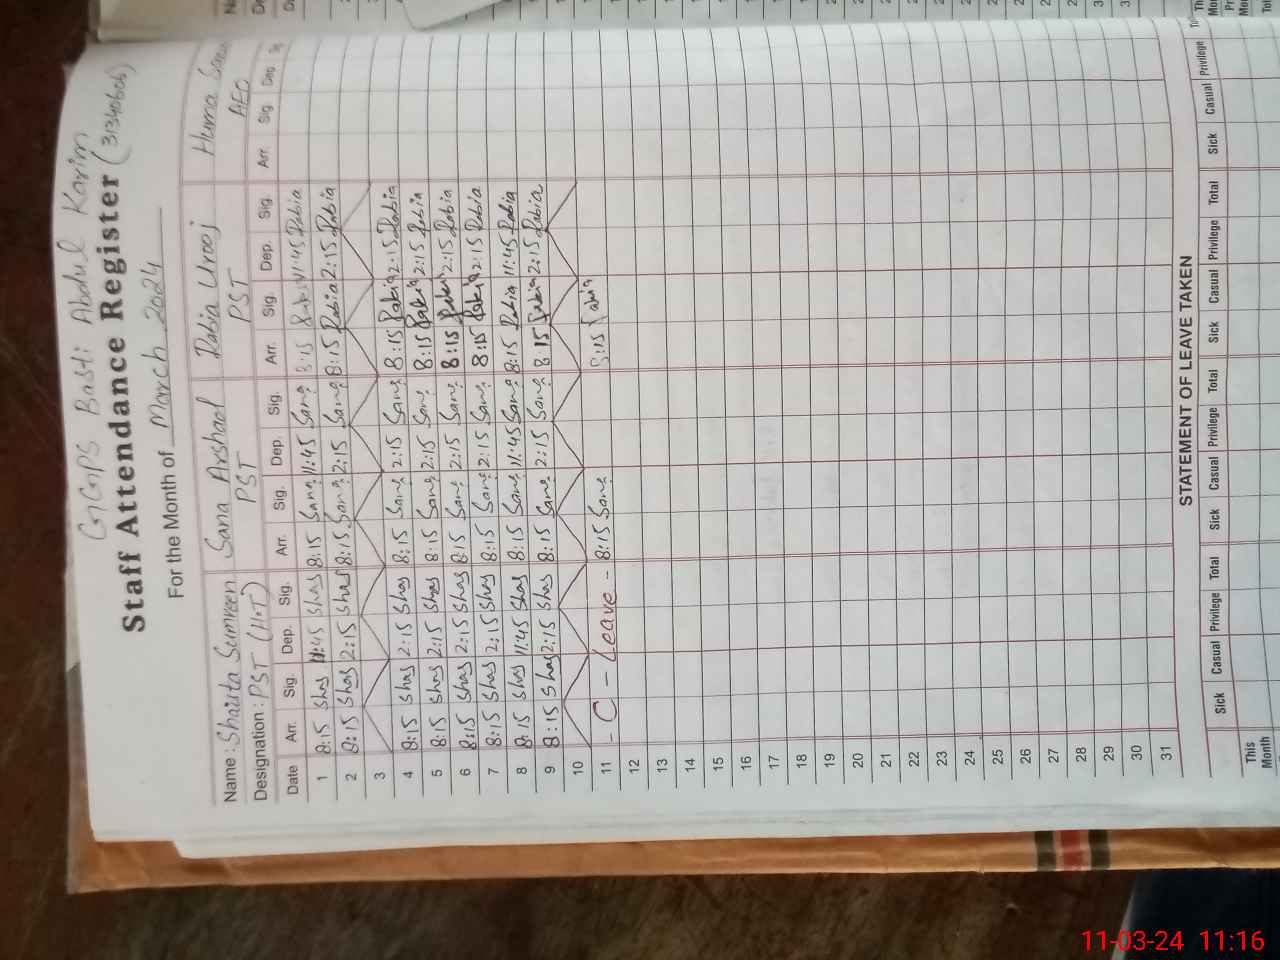 GGPS Basti Abdul Karim
Staff Attendance Register (31340606)
For the Month of March 2024
Name: Shaista Sumreen Sana Arshad Rabia Urooj Huma
Designation: PST (H.T) PST PST AEO
Date Arr. Sig. Dep. Sig. Arr. Sig. Dep. Sig. Arr. Sig. Dep. Sig. Arr. Sig. Dep.
1 8:15 Shas 11:45 Shas 8:15 Sana 11:45 Sana 8:15 Rabia 11:45 Rabia
2 8:15 Shas 2:15 Shas 8:15 Sana 2:15 Sana 8:15 Rabia 2:15 Rabia
3
4 8:15 Shas 2:15 Shas 8:15 Sana 2:15 Sana 8:15 Rabia 2:15 Rabia
5 8:15 Shas 2:15 Shas 8:15 Sana 2:15 Sana 8:15 Rabia 2:15 Rabia
6 8:15 Shas 2:15 Shas 8:15 Sana 2:15 Sana 8:15 Rabia 2:15 Rabia
7 8:15 Shas 2:15 Shas 8:15 Sana 2:15 Sana 8:15 Rabia 2:15 Rabia
8 8:15 Shas 11:45 Shas 8:15 Sana 11:45 Sana 8:15 Rabia 11:45 Rabia
9 8:15 Shas 2:15 Shas 8:15 Sana 2:15 Sana 8:15 Rabia 2:15 Rabia
10
11 - C - Leave - 8:15 Sana 8:15 Rabia
12
13
14
15
16
17
18
19
20
21
22
23
24
25
26
27
28
29
30
31
STATEMENT OF LEAVE TAKEN
Sick Casual Privilege Total Sick Casual Privilege Total Sick Casual Privilege Total Sick Casual Privilege
This Month
11-03-24 11:16